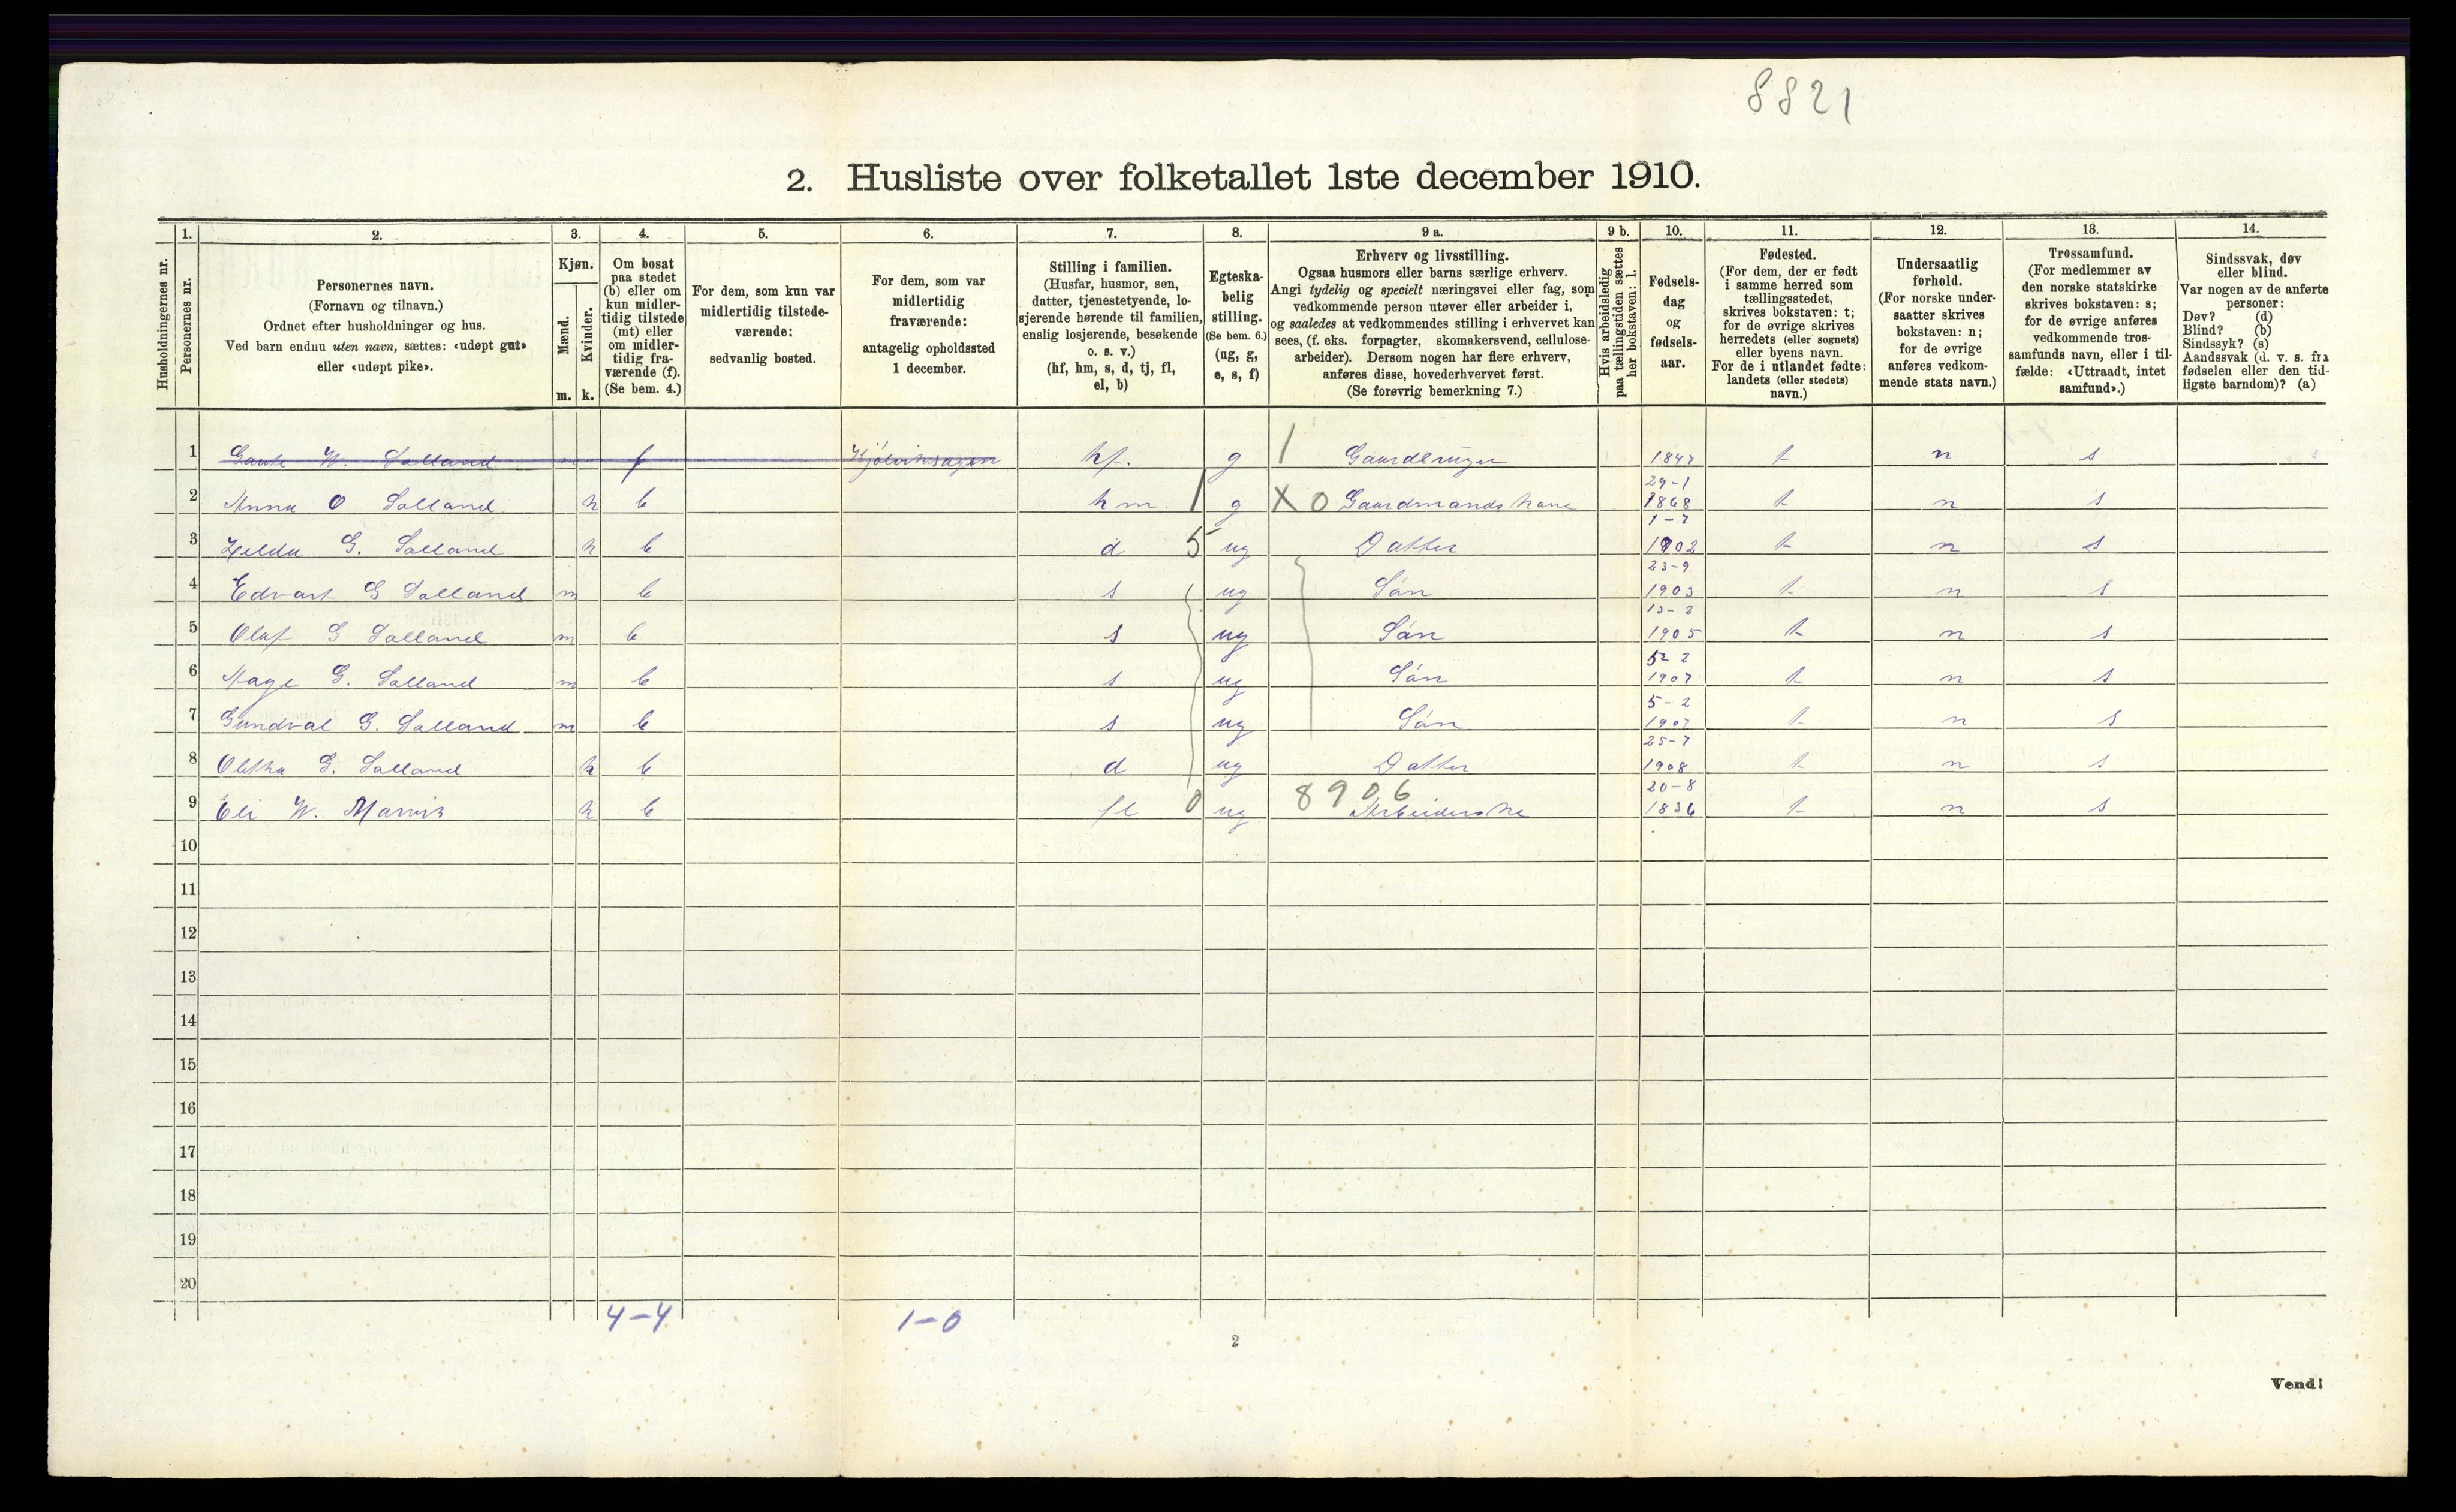 8821
2. Husliste over folketallet 1ste december 1910.
Husholdningernes nr.
1.
Personernes nr.
2.
Personernes navn.
(Fornavn og tilnavn.)
Ordnet efter husholdninger og hus.
Ved barn endnu uten navn, sættes: «udøpt gut»
eller «udøpt pike».
3.
Kjøn.
Mænd.
Kvinder.
m. k.
4.
Om bosat
paa stedet
(b) eller om
kun midler-
tidig tilstede
(mt) eller
om midler-
tidig fra-
værende (f).
(Se bem. 4.)
5.
For dem, som kun var
midlertidig tilstede-
værende:
sedvanlig bosted.
6.
For dem, som var
midlertidig
fraværende:
antagelig opholdssted
1 december.
7.
Stilling i familien.
(Husfar, husmor, søn,
datter, tjenestetyende, lo-
sjerende hørende til familien,
enslig losjerende, besøkende
o. s. v.)
(hf, hm, s, d, tj, fl,
el, b)
8.
Egteska-
belig
stilling.
(Se bem. 6.)
(ug, g,
e, s, f)
9 a.
Erhverv og livsstilling.
Ogsaa husmors eller barns særlige erhverv.
Angi tydelig og specielt næringsvei eller fag, som
vedkommende person utøver eller arbeider i,
og saaledes at vedkommendes stilling i erhvervet kan
sees, (f. eks. forpagter, skomakersvend, cellulose-
arbeider). Dersom nogen har flere erhverv,
anføres disse, hovederhvervet først.
(Se forøvrig bemerkning 7.)
9 b.
Hvis arbeidsledig
paa tællingstiden sættes
her bokstaven: l.
10.
Fødsels-
dag
og
fødsels-
aar.
11.
Fødested.
(For dem, der er født
i samme herred som
tællingsstedet,
skrives bokstaven: t;
for de øvrige skrives
herredets (eller sognets)
eller byens navn.
For de i utlandet fødte:
landets (eller stedets)
navn.)
12.
Undersaatlig
forhold.
(For norske under-
saatter skrives
bokstaven: n;
for de øvrige
anføres vedkom-
mende stats navn.)
13.
Trossamfund.
(For medlemmer av
den norske statskirke
skrives bokstaven: s;
for de øvrige anføres
vedkommende tros-
samfunds navn, eller i til-
fælde: «Uttraadt, intet
samfund».)
14.
Sindssvak, døv
eller blind.
Var nogen av de anførte
personer:
Døv? (d)
Blind? (b)
Sindssyk? (s)
Aandssvak (d. v. s. fra
fødselen eller den tid-
ligste barndom)? (a)
1 Gaute W. Salland m f hf. g 1 1847 t n s
2 Anna O Salland k b hm. 1 g X 0 Gaardmands kone 29-1 1868 t n s
3 Helda G. Salland k b d 5 ug Datter 1-7 1902 t n s
4 Edvart G Salland m b s ug Søn 23-9 1903 t n s
5 Olaf G Salland m b s ug Søn 13-2 1905 t n s
6 Aage G. Salland m b s ug Søn 5-2 1907 t n s
7 Gundval G. Salland m b s ug Søn 5-2 1907 t n s
8 Oletha G. Salland k b d ug Datter 25-7 1908 t n s
9 Eli W. k b fl 0 ug 8906 Arbeiderske 20-8 1836 t n s
10
11
12
13
14
15
16
17
18
19
20
4-4 1-0
2
Vend!